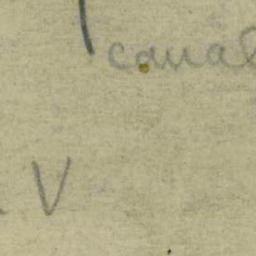 canal
V